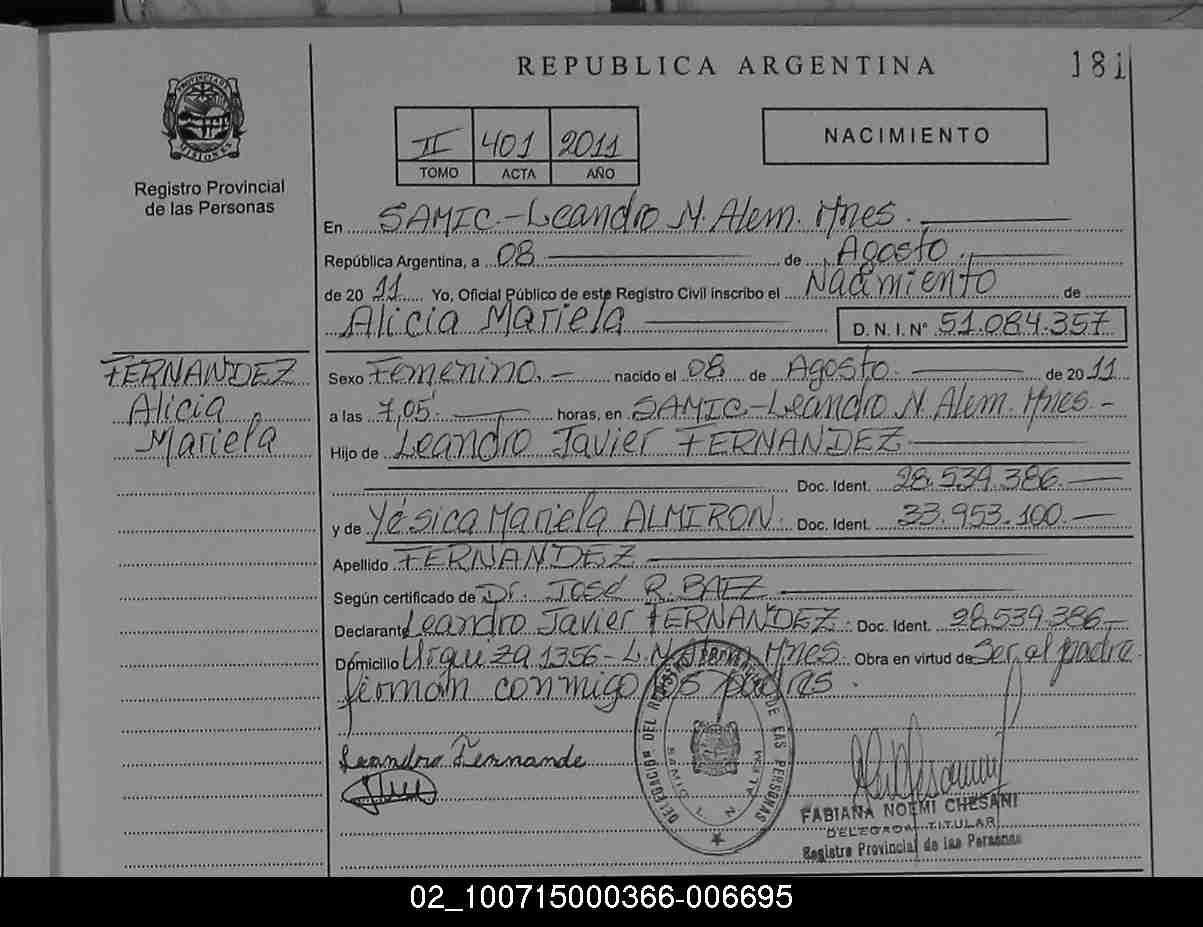 REPUBLICA ARGENTINA
181
PROVINCIA DE
MISIONES
Registro Provincial
de las Personas
II 401 2011
TOMO ACTA AÑO
NACIMIENTO
En SAMIC.-Leandro N. Alem. Mnes.
República Argentina, a 08 de Agosto.
de 2011 Yo, Oficial Público de este Registro Civil inscribo el Nacimiento de
Alicia Mariela D. N. I. N° 51.084.357
FERNANDEZ
Alicia
Mariela
Sexo Femenino.- nacido el 08 de Agosto. de 2011
a las 7,05' horas, en SAMIC-Leandro N. Alem. Mnes-
Hijo de Leandro Javier FERNANDEZ
Doc. Ident. 28.539.386.
y de Yésica Mariela ALMIRON. Doc. Ident. 33.953.100.
Apellido FERNANDEZ
Según certificado de Dr. José R. BAEZ
Declarante Leandro Javier FERNANDEZ. Doc. Ident. 28.539.386
Domicilio Urquiza 1356-L.N.Alem Mnes Obra en virtud de Ser el padre.
firman conmigo los padres.
Leandro Fernande
DELEGACION DEL REGISTRO PROVINCIAL DE LAS PERSONAS
SAMIC L. N. ALEM
FABIANA NOEMI CHESANI
DELEGADA TITULAR
Registro Provincial de las Personas
02_100715000366-006695